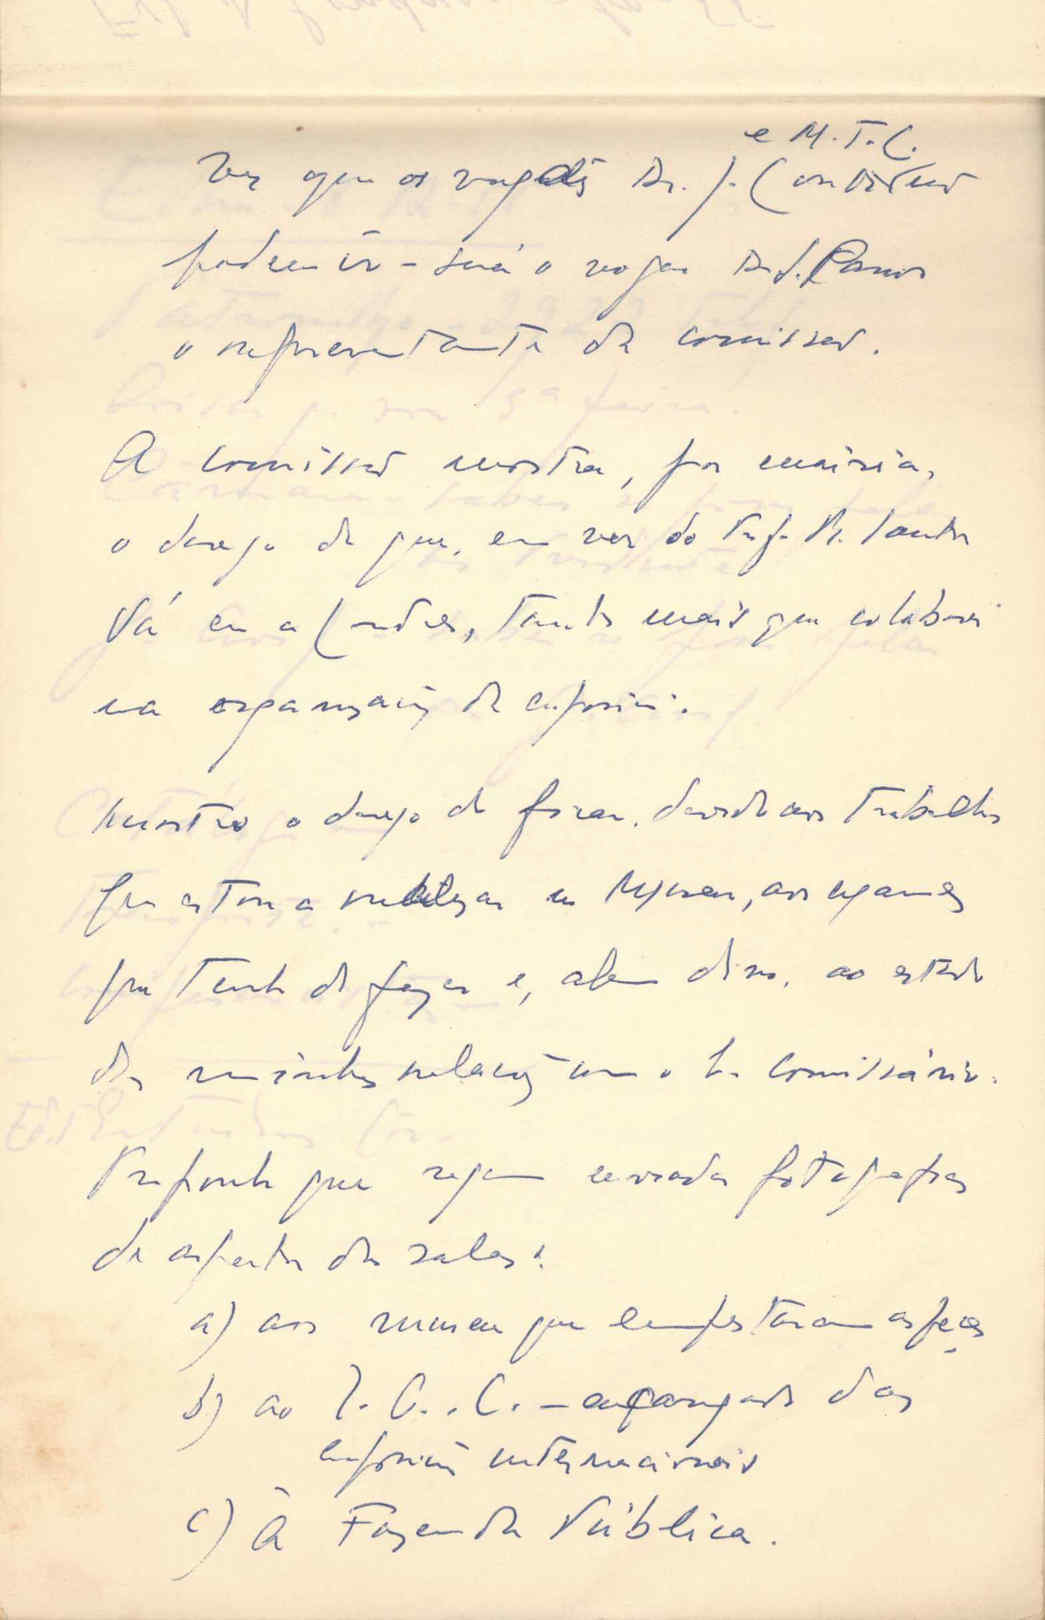 e M.T.C.
vez que os vogais Dr. J. Couto
podem ir - será o vogal Dr. J.
o representante da comissão.
A comissão mostra, por maioria,
o desejo de que, em vez do Prof. R. Santos
Vá eu a Londres, tanto mais que colaborei
na organização da exposição.
Mostro o desejo de ficar, devido aos trabalhos
que estou a realizar no Museu, aos exames
que tenho de fazer e, além disso, ao estado
das minhas relações com o Sr. Comissário.
Proponho que sejam enviadas fotografias
de aspectos das salas:
a) aos museus que emprestaram as peças
b) ao I. . C. - encarregado das
exposições internacionais
c) À Fazenda Pública.